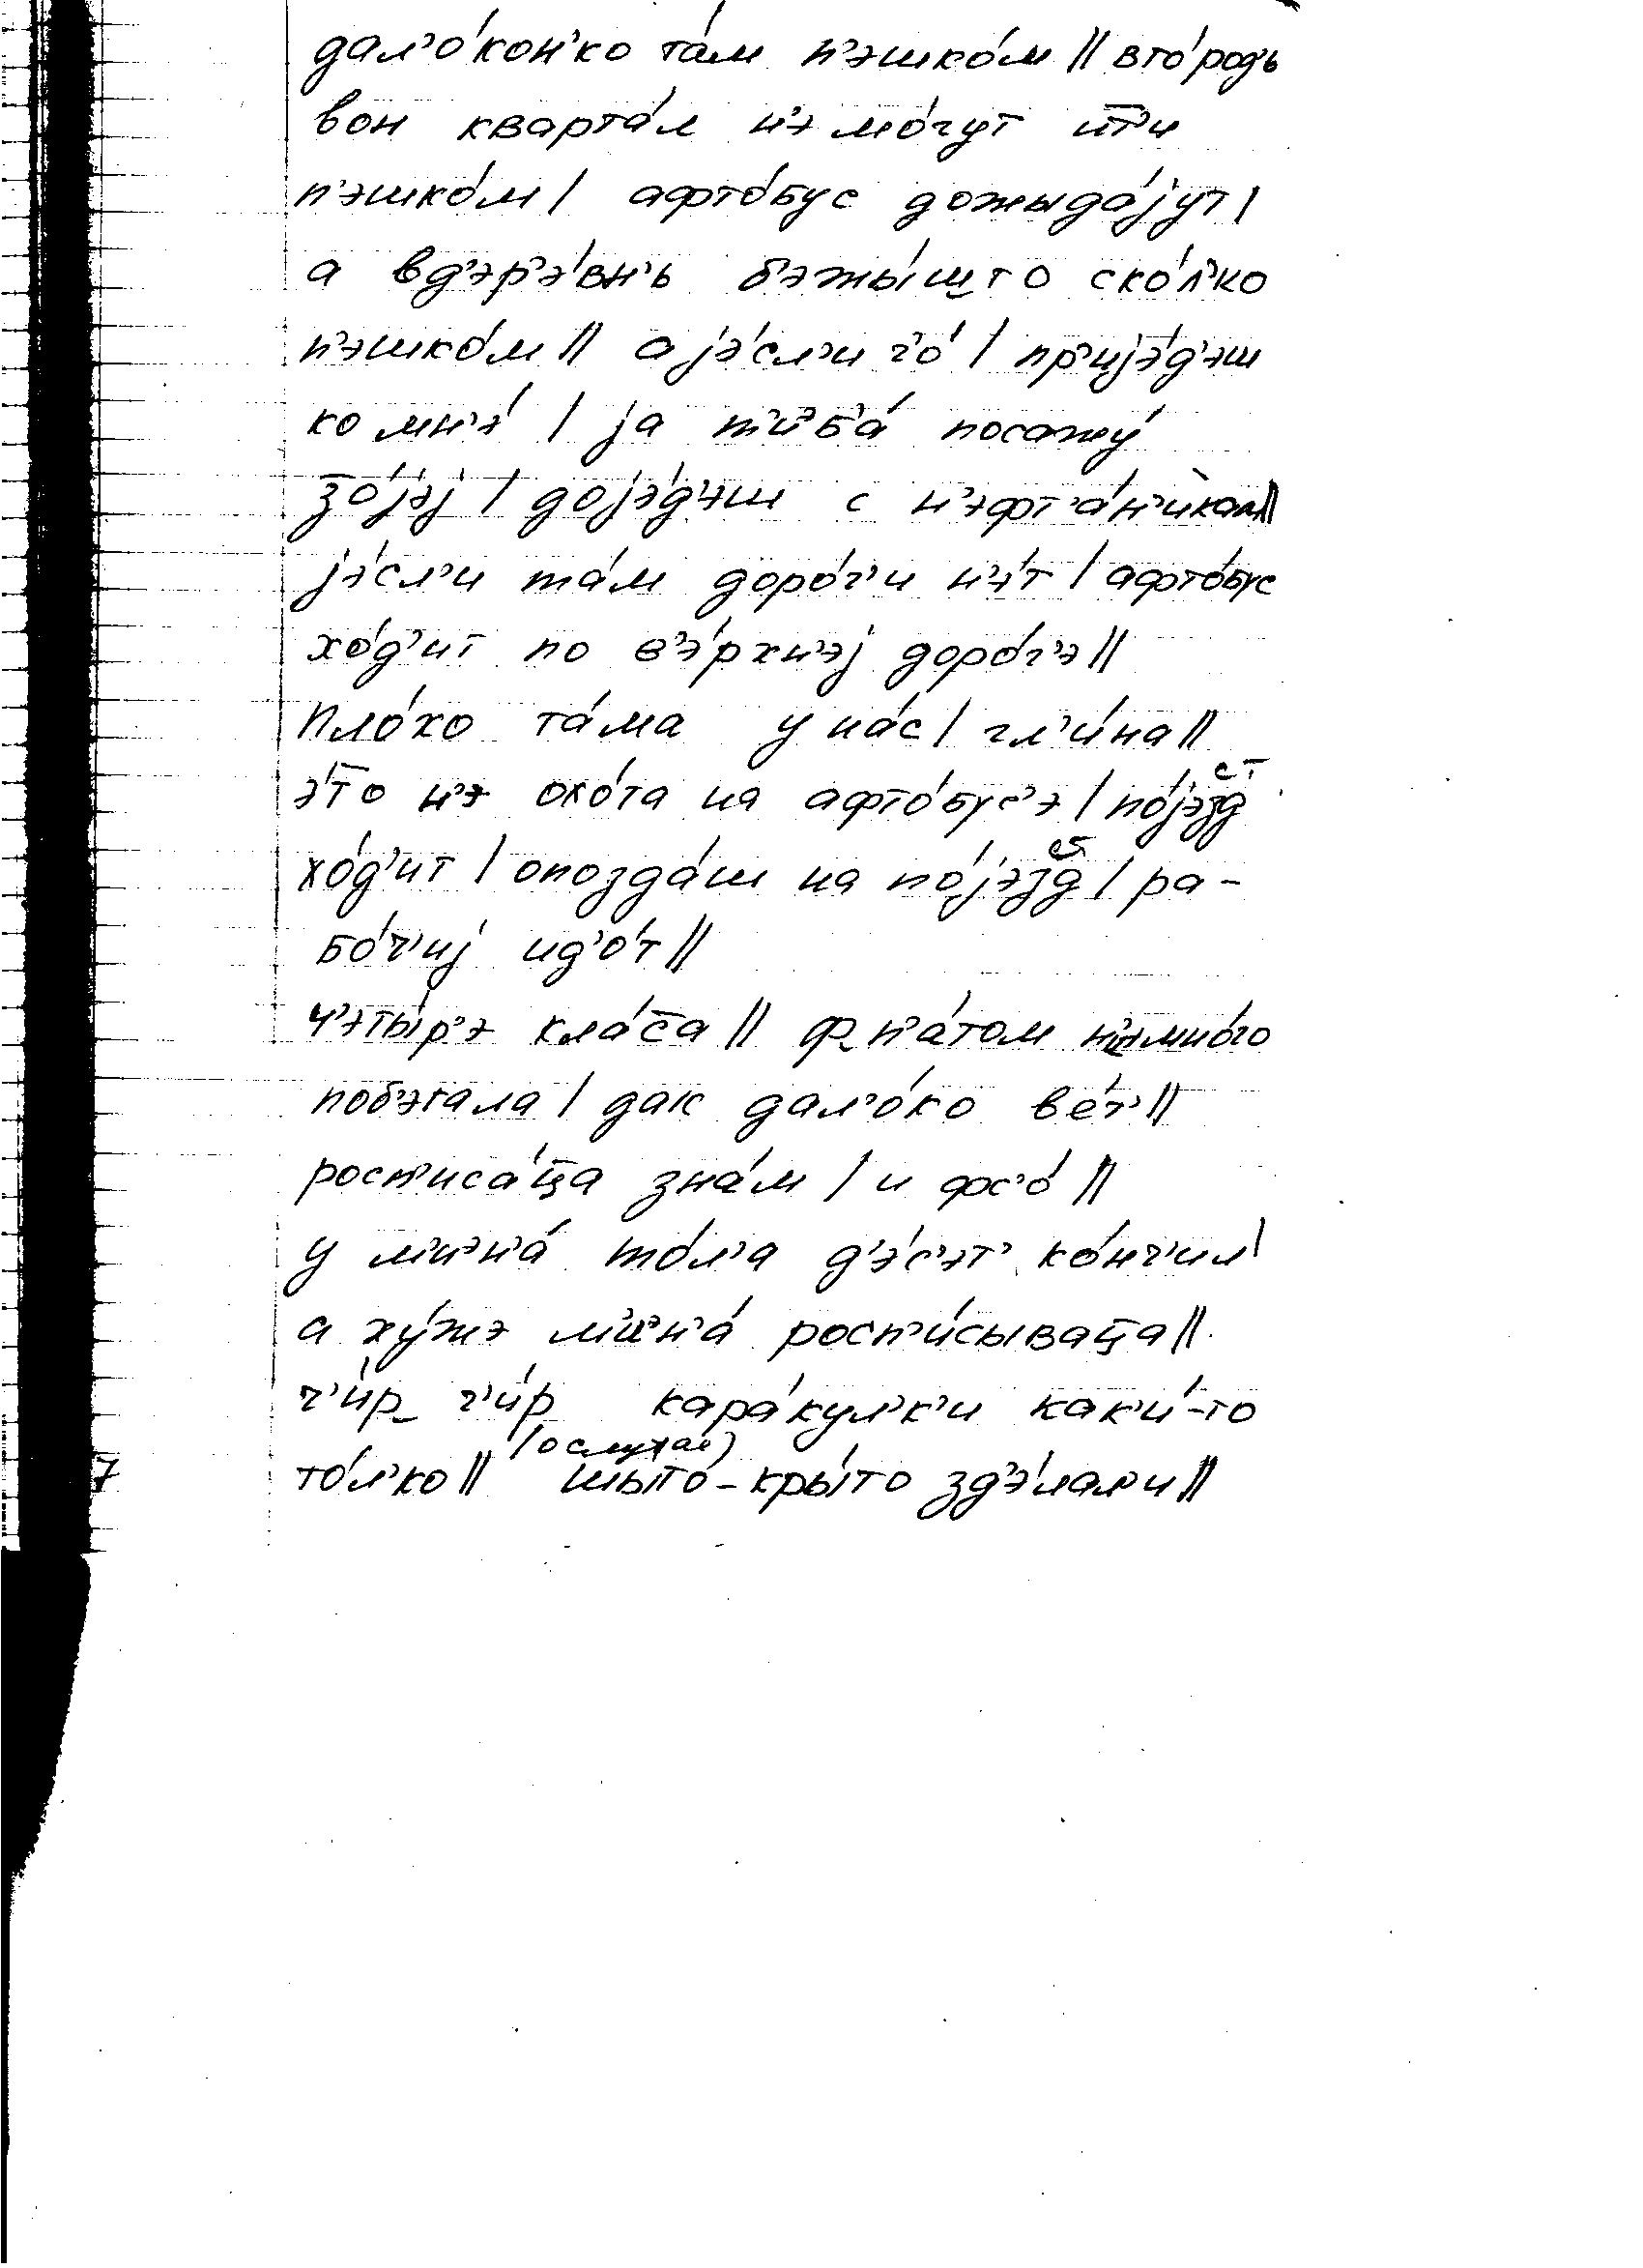 дал’о́кон’ко та́м п’эшко́м || вго́род’ь
вон кварта́л н’э мо́гут ит̅’и
п’эшко́м | афто́бус дожыда́јут |
а вд’эр’э́вн’ь б’эжы́ш то ско́л’ко
п’эшко́м || а јэ́сл’и г’о́ | пр’ијэ́д’эш
ко мн’э́ | ја т’иэб’а́ посажу́
з̅о́јэј | дојэ́д’эш с н’эфт’а́н’икам ||
јэ́сл’и та́м доро́г’и н’э́т | афто́бус
хо́д’ит по в’э́рхн’эј доро́г’э ||
Пло́хо та́ма у на́с | гл’и́на ||
э́т̅о н’э охо́та на афто́бус’э | по́јэзд
ст
хо́д’ит | опозда́ш на по́јэзд | ра-
ст
бо́ч’иј ид’о́т ||
Ч’эты́р’э кла́с̅а || ф п’а́том н’эмно́го
поб’эгала | дак дал’о́ко ве́т’ ||
росп’иса́ц̅а зна́м | и фс’о́ ||
у м’иэн’а́ то́л’а д’э́с’эт’ ко́нч’ил |
а ху́жэ м’иэн’а́ росп’и́сываца ||
ч’и́р ч’и́р кара́кул’к’и как’и́-то
(о случае)
7 то́л’ко || шы́то-кры́то зд’э́лал’и ||